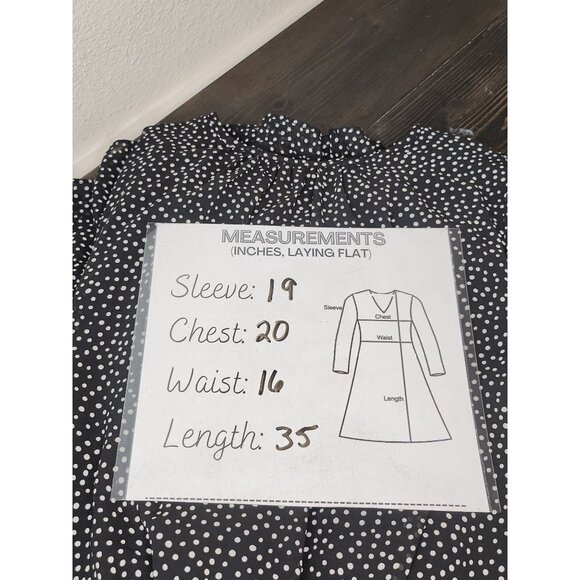 MEASUREMENTS
(INCHES, LAYING FLAT)
Sleeve: 19
Chest: 20
Waist: 16
Length: 35
Sleeve
Chest
Waist
Length